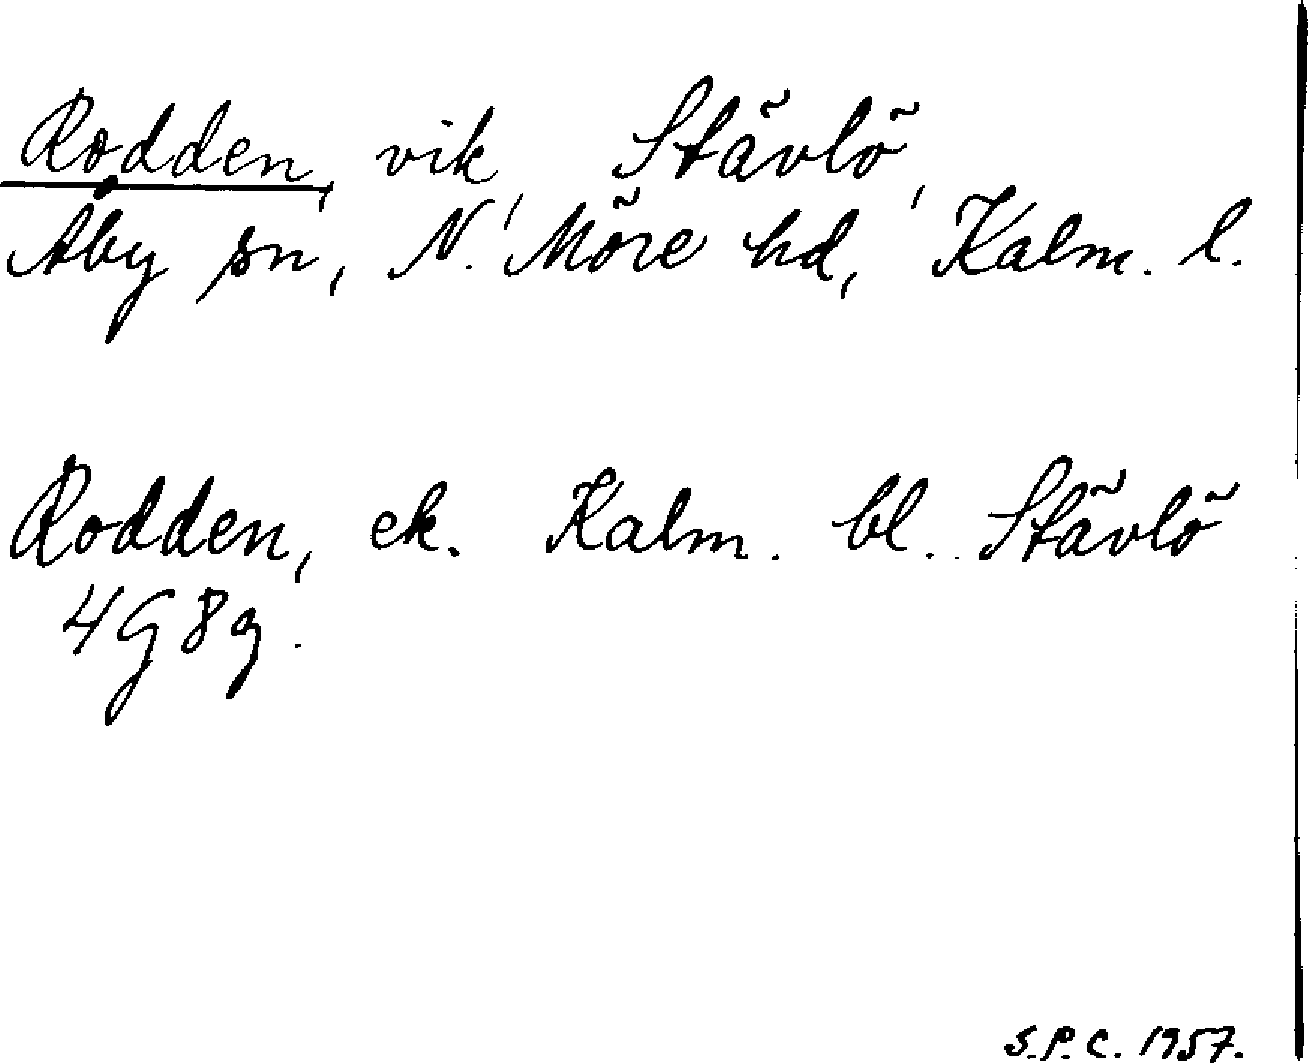 Rodden, vik, Stävlö,
Åby sn, N. Möre hd, Kalm. l.
Rodden, ek. Kalm. bl. Stävlö
4G8g.
S.P.C. 1957.